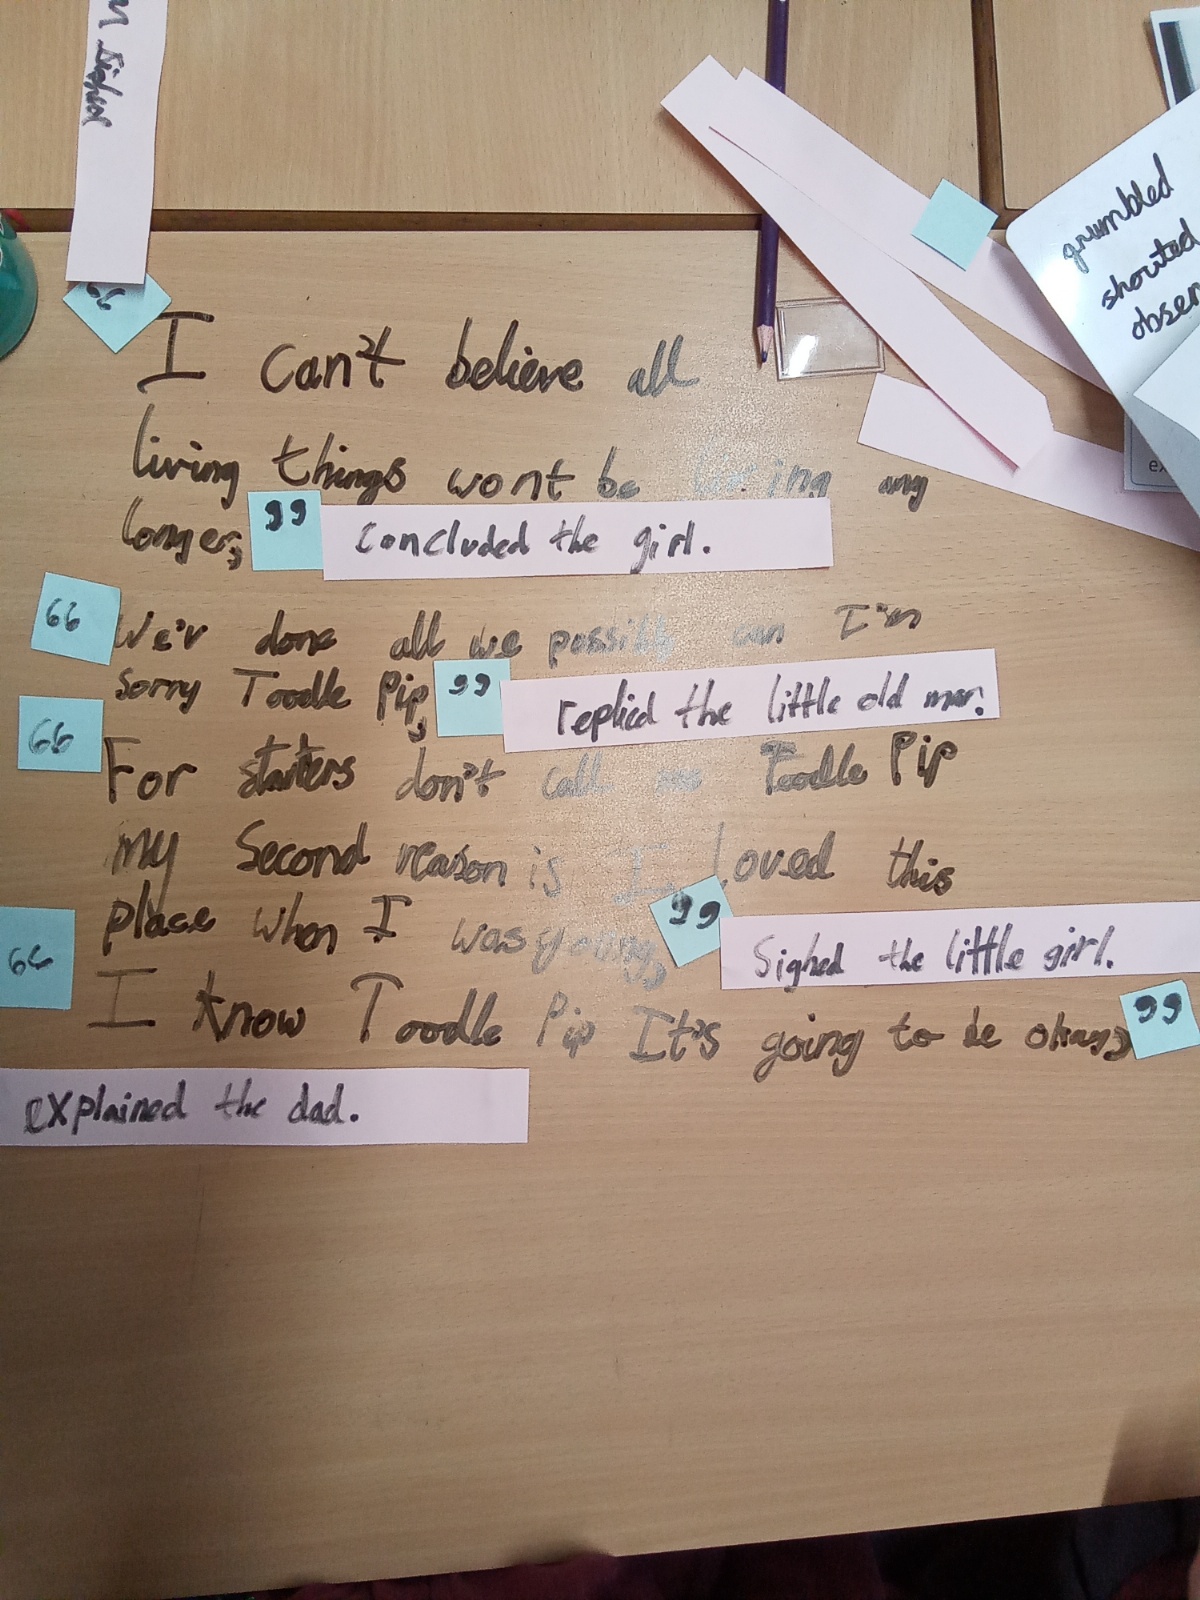 “ I can't believe all
living things wont be living any
longer, ” Concluded the girl.
“ We'r done all we possibly can I'm
sorry Toodle Pip, ” replied the little old man.
“ For starters don't call me Toodle Pip
my Second reason is I loved this
place when I was young, ” Sighed the little girl.
“ I know Toodle Pip It's going to be okay, ”
explained the dad.
grumbled
shouted